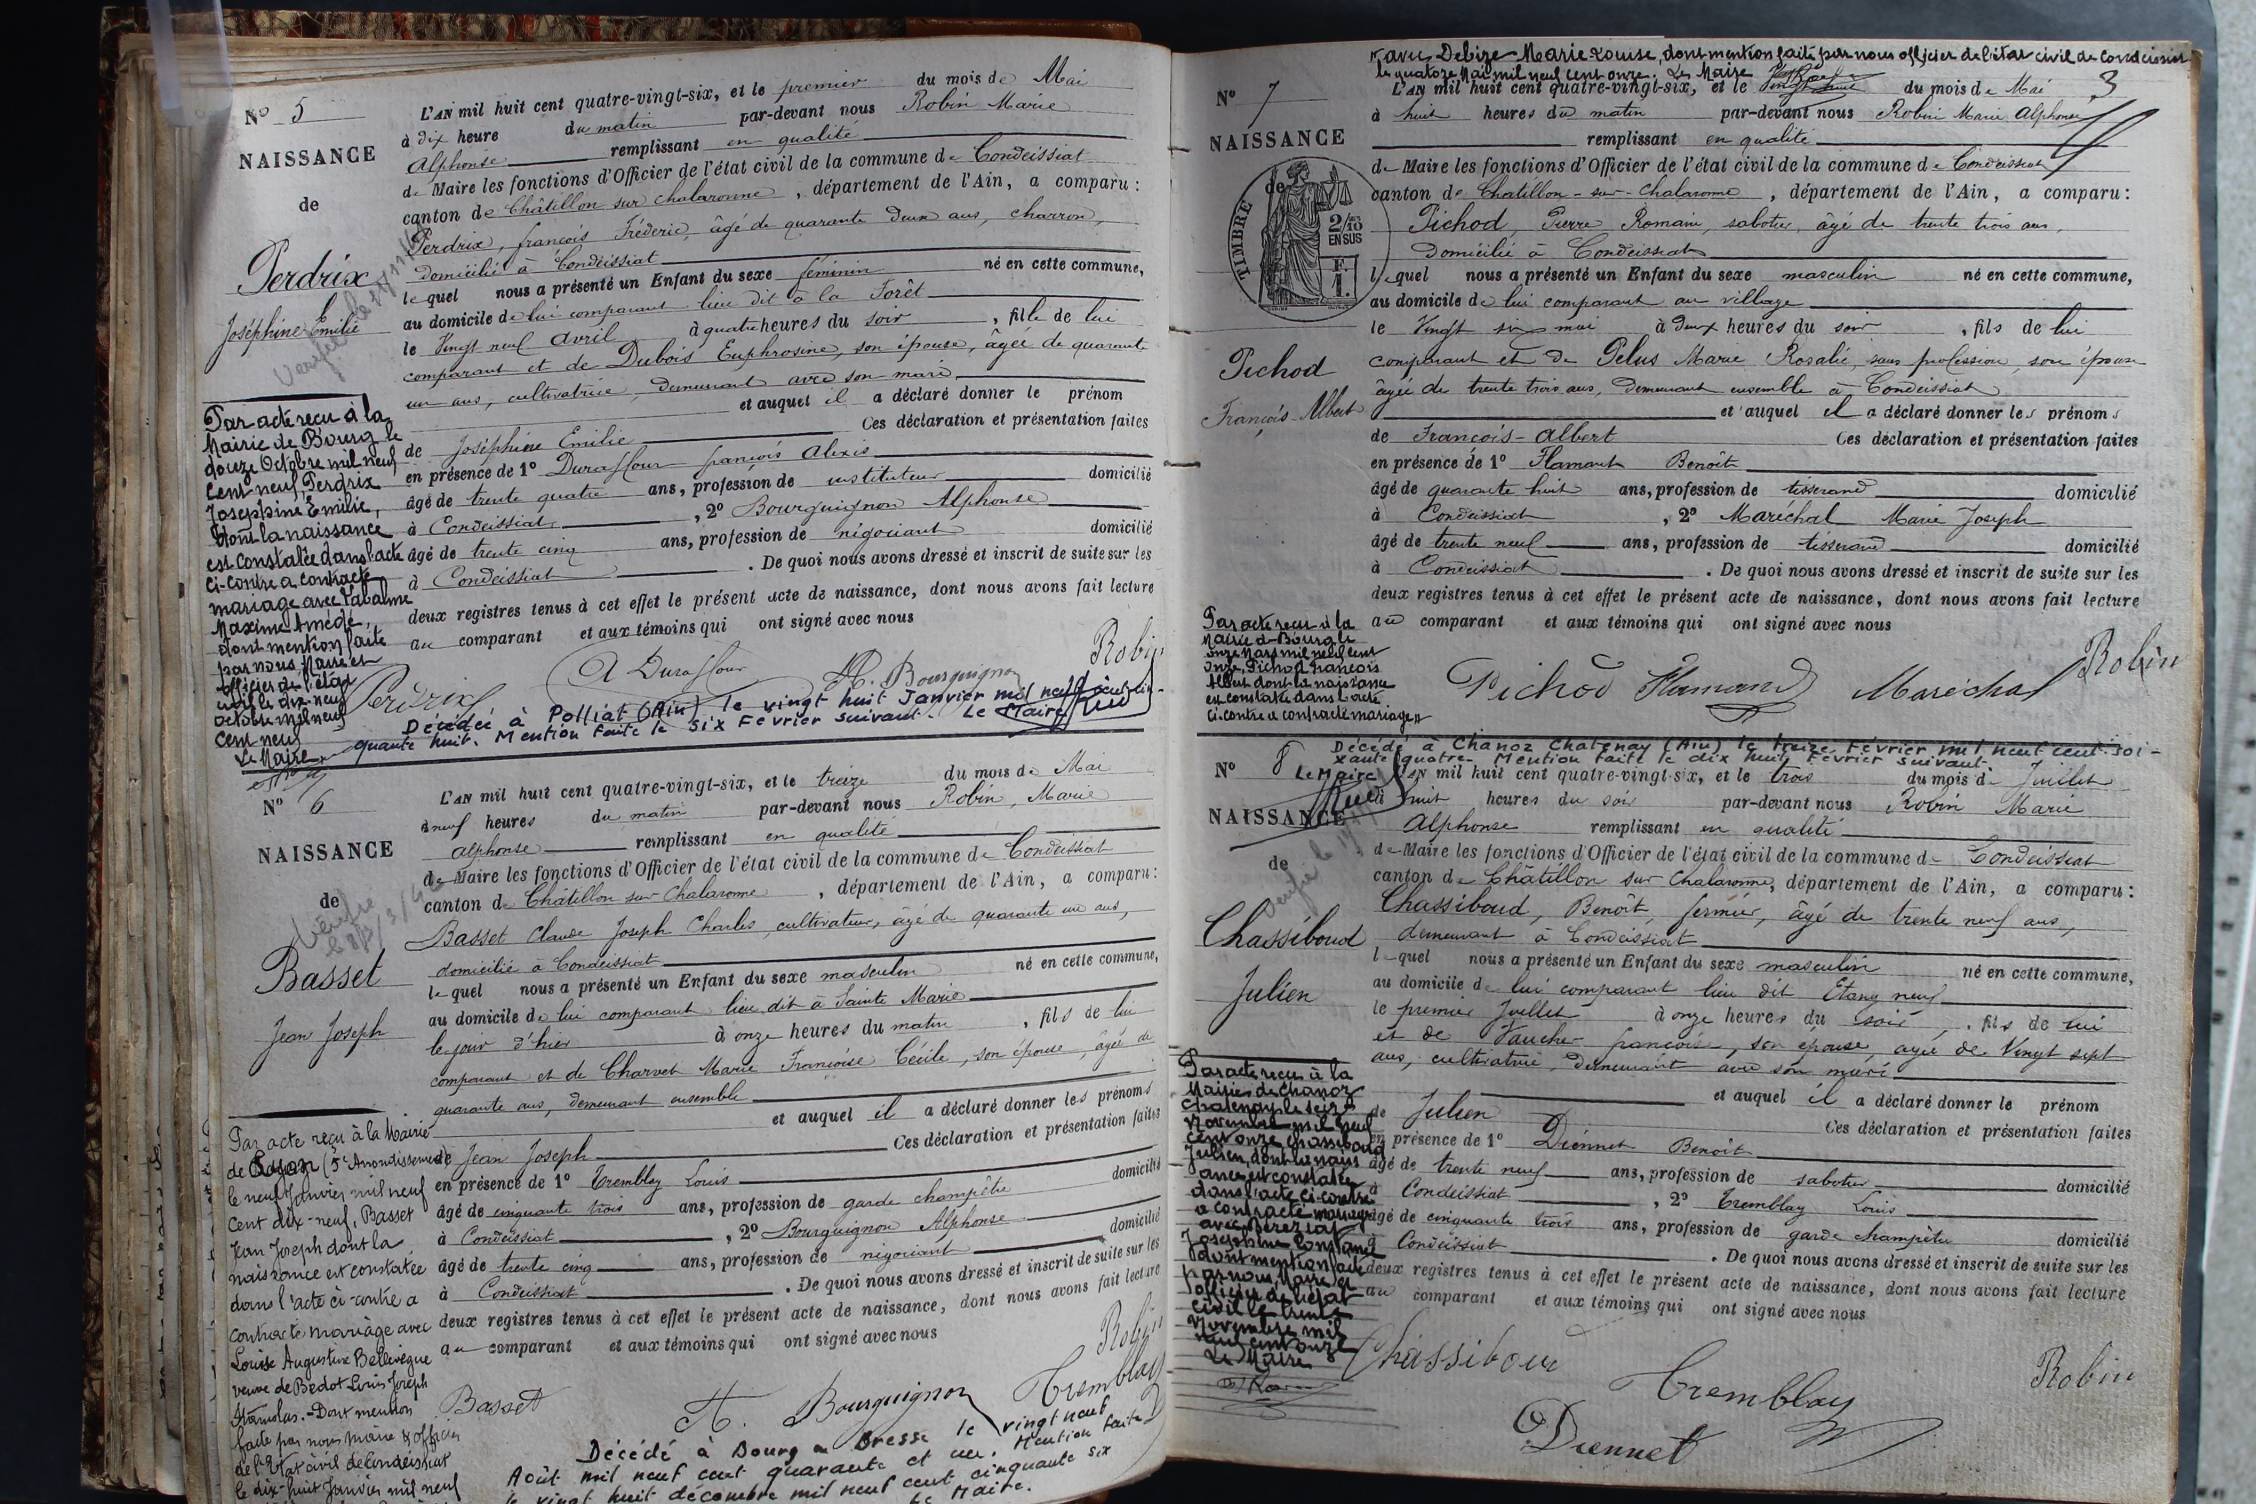 Nº 5
NAISSANCE
de
Perdrix
Joséphine Emilie
L'AN mil huit cent quatre-vingt-six, et le premier du mois de Mai
à dix heure du matin par-devant nous Robin Marie
Alphonse remplissant en qualité
de Maire les fonctions d'Officier de l'état civil de la commune de Condeissiat
canton de Châtillon sur chalaronne, département de l'Ain, a comparu:
Perdrix, françois Fréderic, âgé de quarante deux ans, charron,
domicilié à Condeissiat
lequel nous a présenté un Enfant du sexe féminin né en cette commune,
au domicile de lui comparant lieu dit à la Forêt
le Vingt neuf avril à quatre heures du soir, fille de lui
comparant et de Dubois Euphrosine, son épouse, âgée de quarante
un ans, cultivatrice, demeurant avec son mari
et auquel il a déclaré donner le prénom
de Joséphine Emilie Ces déclaration et présentation faites
en présence de 1º Duraffour françois Alexis
âgé de trente quatre ans, profession de instituteur domicilié
à Condeissiat, 2º Bourguignon Alphonse
âgé de trente cinq ans, profession de négociant domicilié
à Condeissiat. De quoi nous avons dressé et inscrit de suite sur les
deux registres tenus à cet effet le présent acte de naissance, dont nous avons fait lecture
au comparant et aux témoins qui ont signé avec nous
Perdrix A Duraffour A. Bourguignon Robin
Par acte reçu à la
Mairie de Bourg le
douze Octobre mil neuf
cent neuf, Perdrix
Joséphine Emilie,
dont la naissance
est constatée dans l'acte
ci-contre a contracté
mariage avec
Maxime Amédé,
dont mention faite
par nous Maire et
officier de l'état
civil le dix-neuf
octobre mil neuf
cent neuf
Le Maire
Décédée à Polliat (Ain) le vingt huit Janvier mil neuf cent cin-
quante huit. Mention faite le six Février suivant. Le Maire
Nº 6
NAISSANCE
de
Basset
Jean Joseph
L'AN mil huit cent quatre-vingt-six, et le treize du mois de Mai
à neuf heures du matin par-devant nous Robin, Marie
Alphonse remplissant en qualité
de Maire les fonctions d'Officier de l'état civil de la commune de Condeissiat
canton de Châtillon sur Chalaronne, département de l'Ain, a comparu:
Basset Claude Joseph Charles, cultivateur, âgé de quarante un ans,
domicilié à Condeissiat
lequel nous a présenté un Enfant du sexe masculin né en cette commune,
au domicile de lui comparant lieu dit à Sainte Marie
le jour d'hier à onze heures du matin, fils de lui
comparant et de Charvet Marie Françoise Cécile, son épouse, âgée de
quarante ans, demeurant ensemble
et auquel il a déclaré donner les prénoms
de Jean Joseph Ces déclaration et présentation faites
en présence de 1º Tremblay Louis
âgé de cinquante trois ans, profession de garde champêtre domicilié
à Condeissiat, 2º Bourguignon Alphonse
âgé de trente cinq ans, profession de négociant domicilié
à Condeissiat. De quoi nous avons dressé et inscrit de suite sur les
deux registres tenus à cet effet le présent acte de naissance, dont nous avons fait lecture
au comparant et aux témoins qui ont signé avec nous
Basset A. Bourguignon Tremblay Robin
Par acte reçu à la Mairie
de Lyon (5e Arrondissement)
le neuf Janvier mil neuf
cent dix-neuf, Basset
Jean Joseph dont la
naissance est constatée
dans l'acte ci-contre a
contracté mariage avec
Louise Augustine Bellevègue
veuve de Bedot Louis Joseph
Stanislas. - Dont mention
faite par nous maire & officier
de l'Etat civil de Condeissiat
le dix-huit Janvier mil neuf
Décédé à Bourg en Bresse le vingt neuf
Août mil neuf cent quarante et un. Mention faite
le vingt huit décembre mil neuf cent cinquante six
Le Maire.
avec Debize Marie Louise, dont mention faite par nous officier de l'état civil de Condeissiat
le quatorze Mai mil neuf cent onze. Le Maire
3
Nº 7
NAISSANCE
de
TIMBRE
2/10
EN SUS
F.
1.
Pichod
François-Albert
L'AN mil huit cent quatre-vingt-six, et le vingt huit du mois de Mai
à huit heures du matin par-devant nous Robin Marie Alphonse
remplissant en qualité
de Maire les fonctions d'Officier de l'état civil de la commune de Condeissiat
canton de Chatillon-sur-Chalaronne, département de l'Ain, a comparu:
Pichod, Pierre Romain, sabotier, âgé de trente trois ans,
Domicilié à Condeissiat
lequel nous a présenté un Enfant du sexe masculin né en cette commune,
au domicile de lui comparant au village
le Vingt six mai à deux heures du soir, fils de lui
comparant et de Pelus Marie Rosalie, sans profession, son épouse
âgée de trente trois ans, demeurant ensemble à Condeissiat
et auquel il a déclaré donner les prénoms
de François-Albert Ces déclaration et présentation faites
en présence de 1º Flamant Benoît
âgé de quarante huit ans, profession de tisserand domicilié
à Condeissiat, 2º Maréchal Marie Joseph
âgé de trente neuf ans, profession de tisserand domicilié
à Condeissiat. De quoi nous avons dressé et inscrit de suite sur les
deux registres tenus à cet effet le présent acte de naissance, dont nous avons fait lecture
au comparant et aux témoins qui ont signé avec nous
Pichod Flamand Maréchal Robin
Par acte reçu à la
Mairie de Bourg le
onze Mars mil neuf cent
onze, Pichod François
Albert dont la naissance
est constatée dans l'acte
ci-contre a contracté mariage
Décédé à Chanoz Chatenay (Ain) le treize Février mil neuf cent soi-
xante quatre. Mention faite le dix huit Février suivant.
Le Maire
Nº 8
NAISSANCE
de
Chassiboud
Julien
L'AN mil huit cent quatre-vingt-six, et le trois du mois de Juillet
à huit heures du soir par-devant nous Robin Marie
Alphonse remplissant en qualité
de Maire les fonctions d'Officier de l'état civil de la commune de Condeissiat
canton de Châtillon sur Chalaronne, département de l'Ain, a comparu:
Chassiboud, Benoît, fermier, âgé de trente neuf ans,
demeurant à Condeissiat
lequel nous a présenté un Enfant du sexe masculin né en cette commune,
au domicile de lui comparant lieu dit Etang neuf
le premier Juillet à onze heures du soir, fils de lui
et de Vaucher françoise, son épouse, agée de Vingt sept
ans, cultivatrice, demeurant avec son mari
et auquel il a déclaré donner le prénom
de Julien Ces déclaration et présentation faites
en présence de 1º Diennet Benoît
âgé de trente neuf ans, profession de sabotier domicilié
à Condeissiat, 2º Tremblay Louis
âgé de cinquante trois ans, profession de garde champêtre domicilié
à Condeissiat. De quoi nous avons dressé et inscrit de suite sur les
deux registres tenus à cet effet le présent acte de naissance, dont nous avons fait lecture
au comparant et aux témoins qui ont signé avec nous
Chassiboud Tremblay Diennet Robin
Par acte reçu à la
Mairie de Chanoz
Chatenay le seize
Novembre mil neuf
cent onze Chassiboud
Julien, dont la naiss
ance est constatée
dans l'acte ci-contre
a contracté mariage
avec Bereziat
Josephine Constance
dont mention faite
par nous, Maire et
officier de l'état
civil le trente
Novembre mil
neuf cent onze
Le Maire